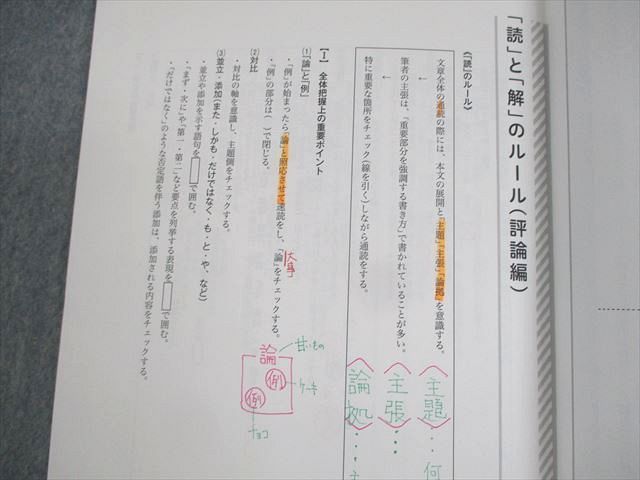 「読」と「解」のルール(評論編)
《「読」のルール》
文章全体の通読の際には、本文の展開と「主題」「主張」「論拠」を意識する。
←
筆者の主張は、「重要部分を強調する書き方」で書かれていることが多い。
←
特に重要な箇所をチェック(線を引く)しながら通読をする。
主題‥何
主張‥
論拠‥
【Ⅰ】 全体把握上の重要ポイント
(1)「論」と「例」
・「例」が始まったら「論」と照応させて速読をし、「論」をチェックする。
大事
・「例」の部分は( )で閉じる。
(2)対比
・対比の軸を意識し、主題側をチェックする。
(3)並立・添加(また・しかも・だけではなく・も・と・や、など)
・並立や添加を示す語句を で囲む。
・「まず・次に」や「第一・第二」など要点を列挙する表現を で囲む。
・「だけではなく」のような否定語を伴う添加は、添加される内容をチェックする。
論
甘いもの
例
ケーキ
例
チョコ